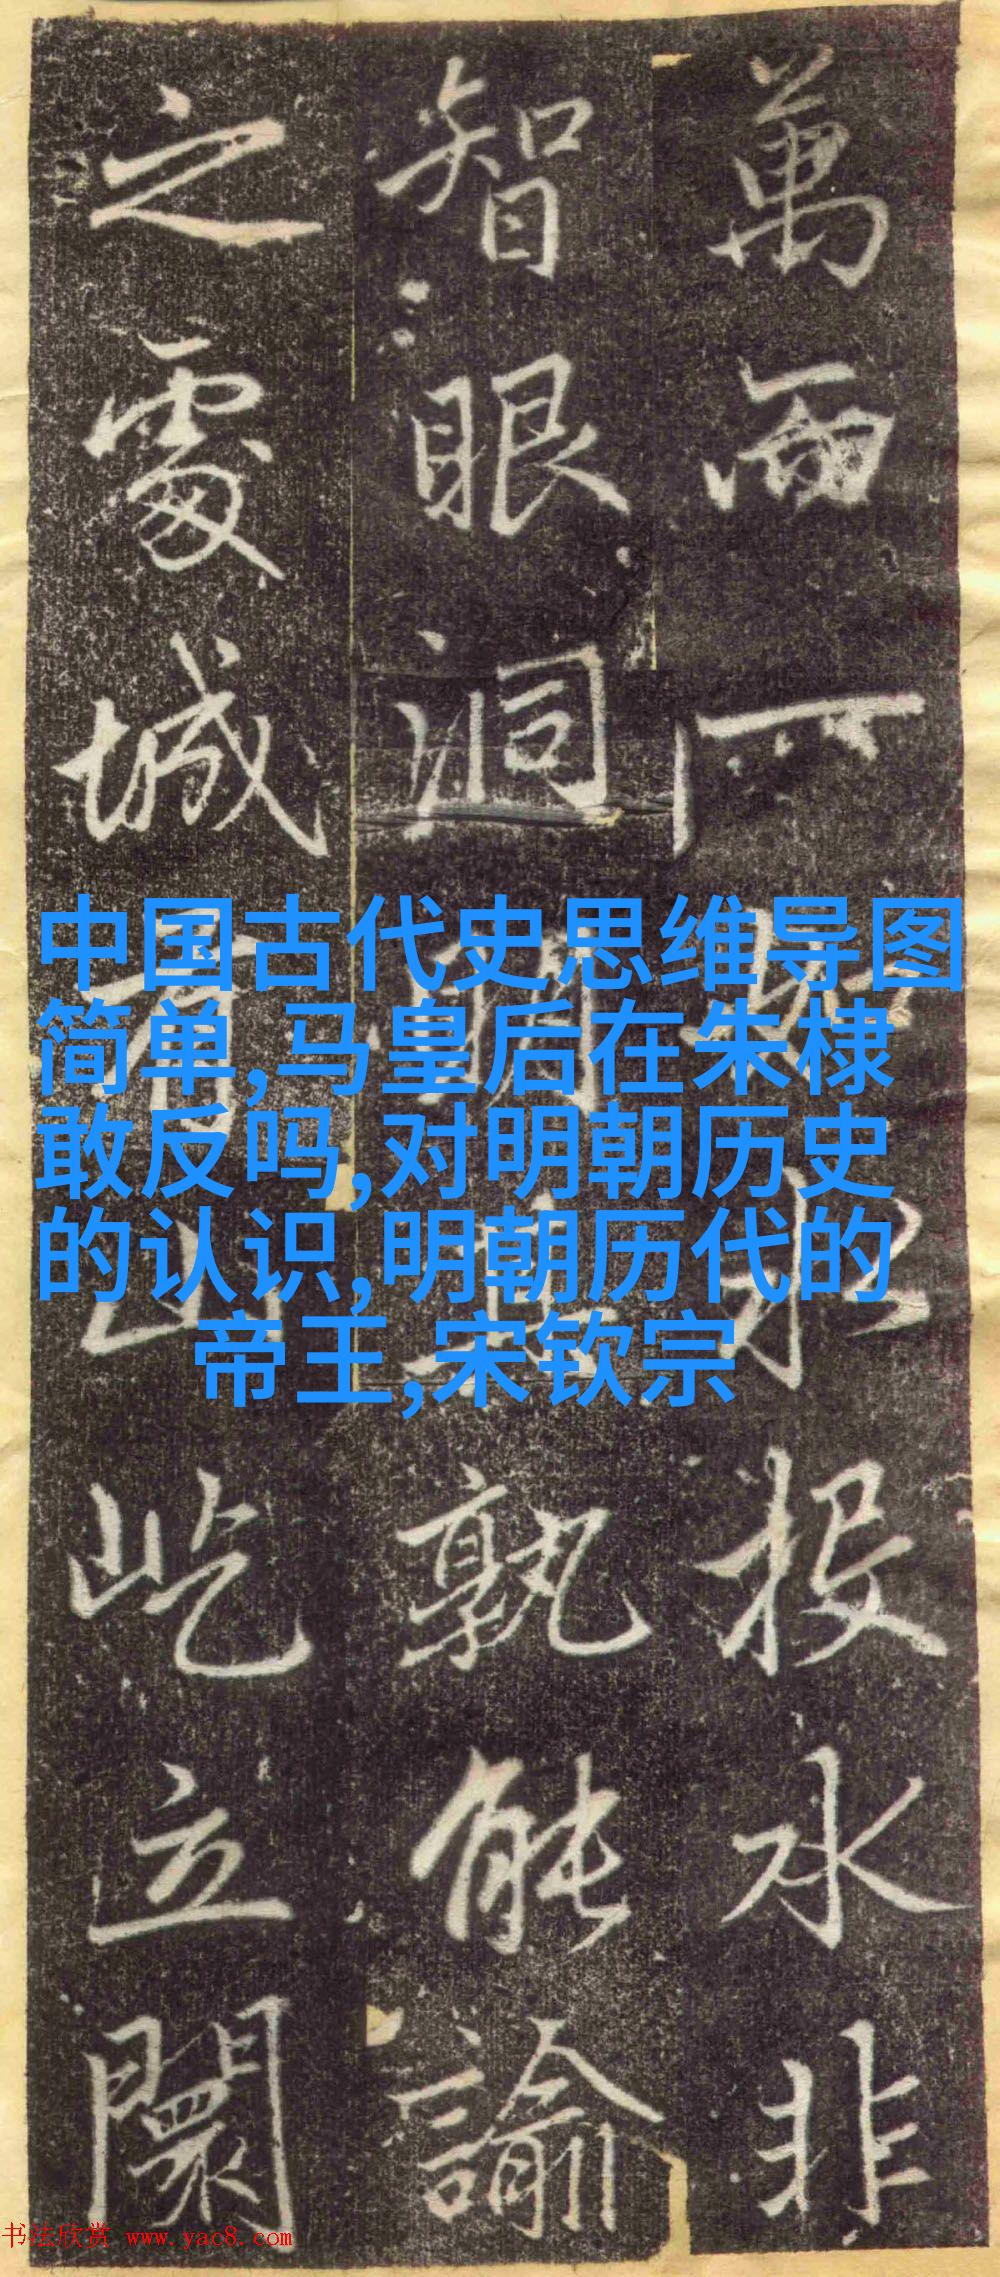 萬一水投水非
智眼洞孰能諭
之處城有山屹立闤
中国古代史思维导图
简单,马皇后在朱棣
敢反吗,对明朝历史
的认识,明朝历代的
帝王,宋钦宗
书法欣赏 www.yac8.com